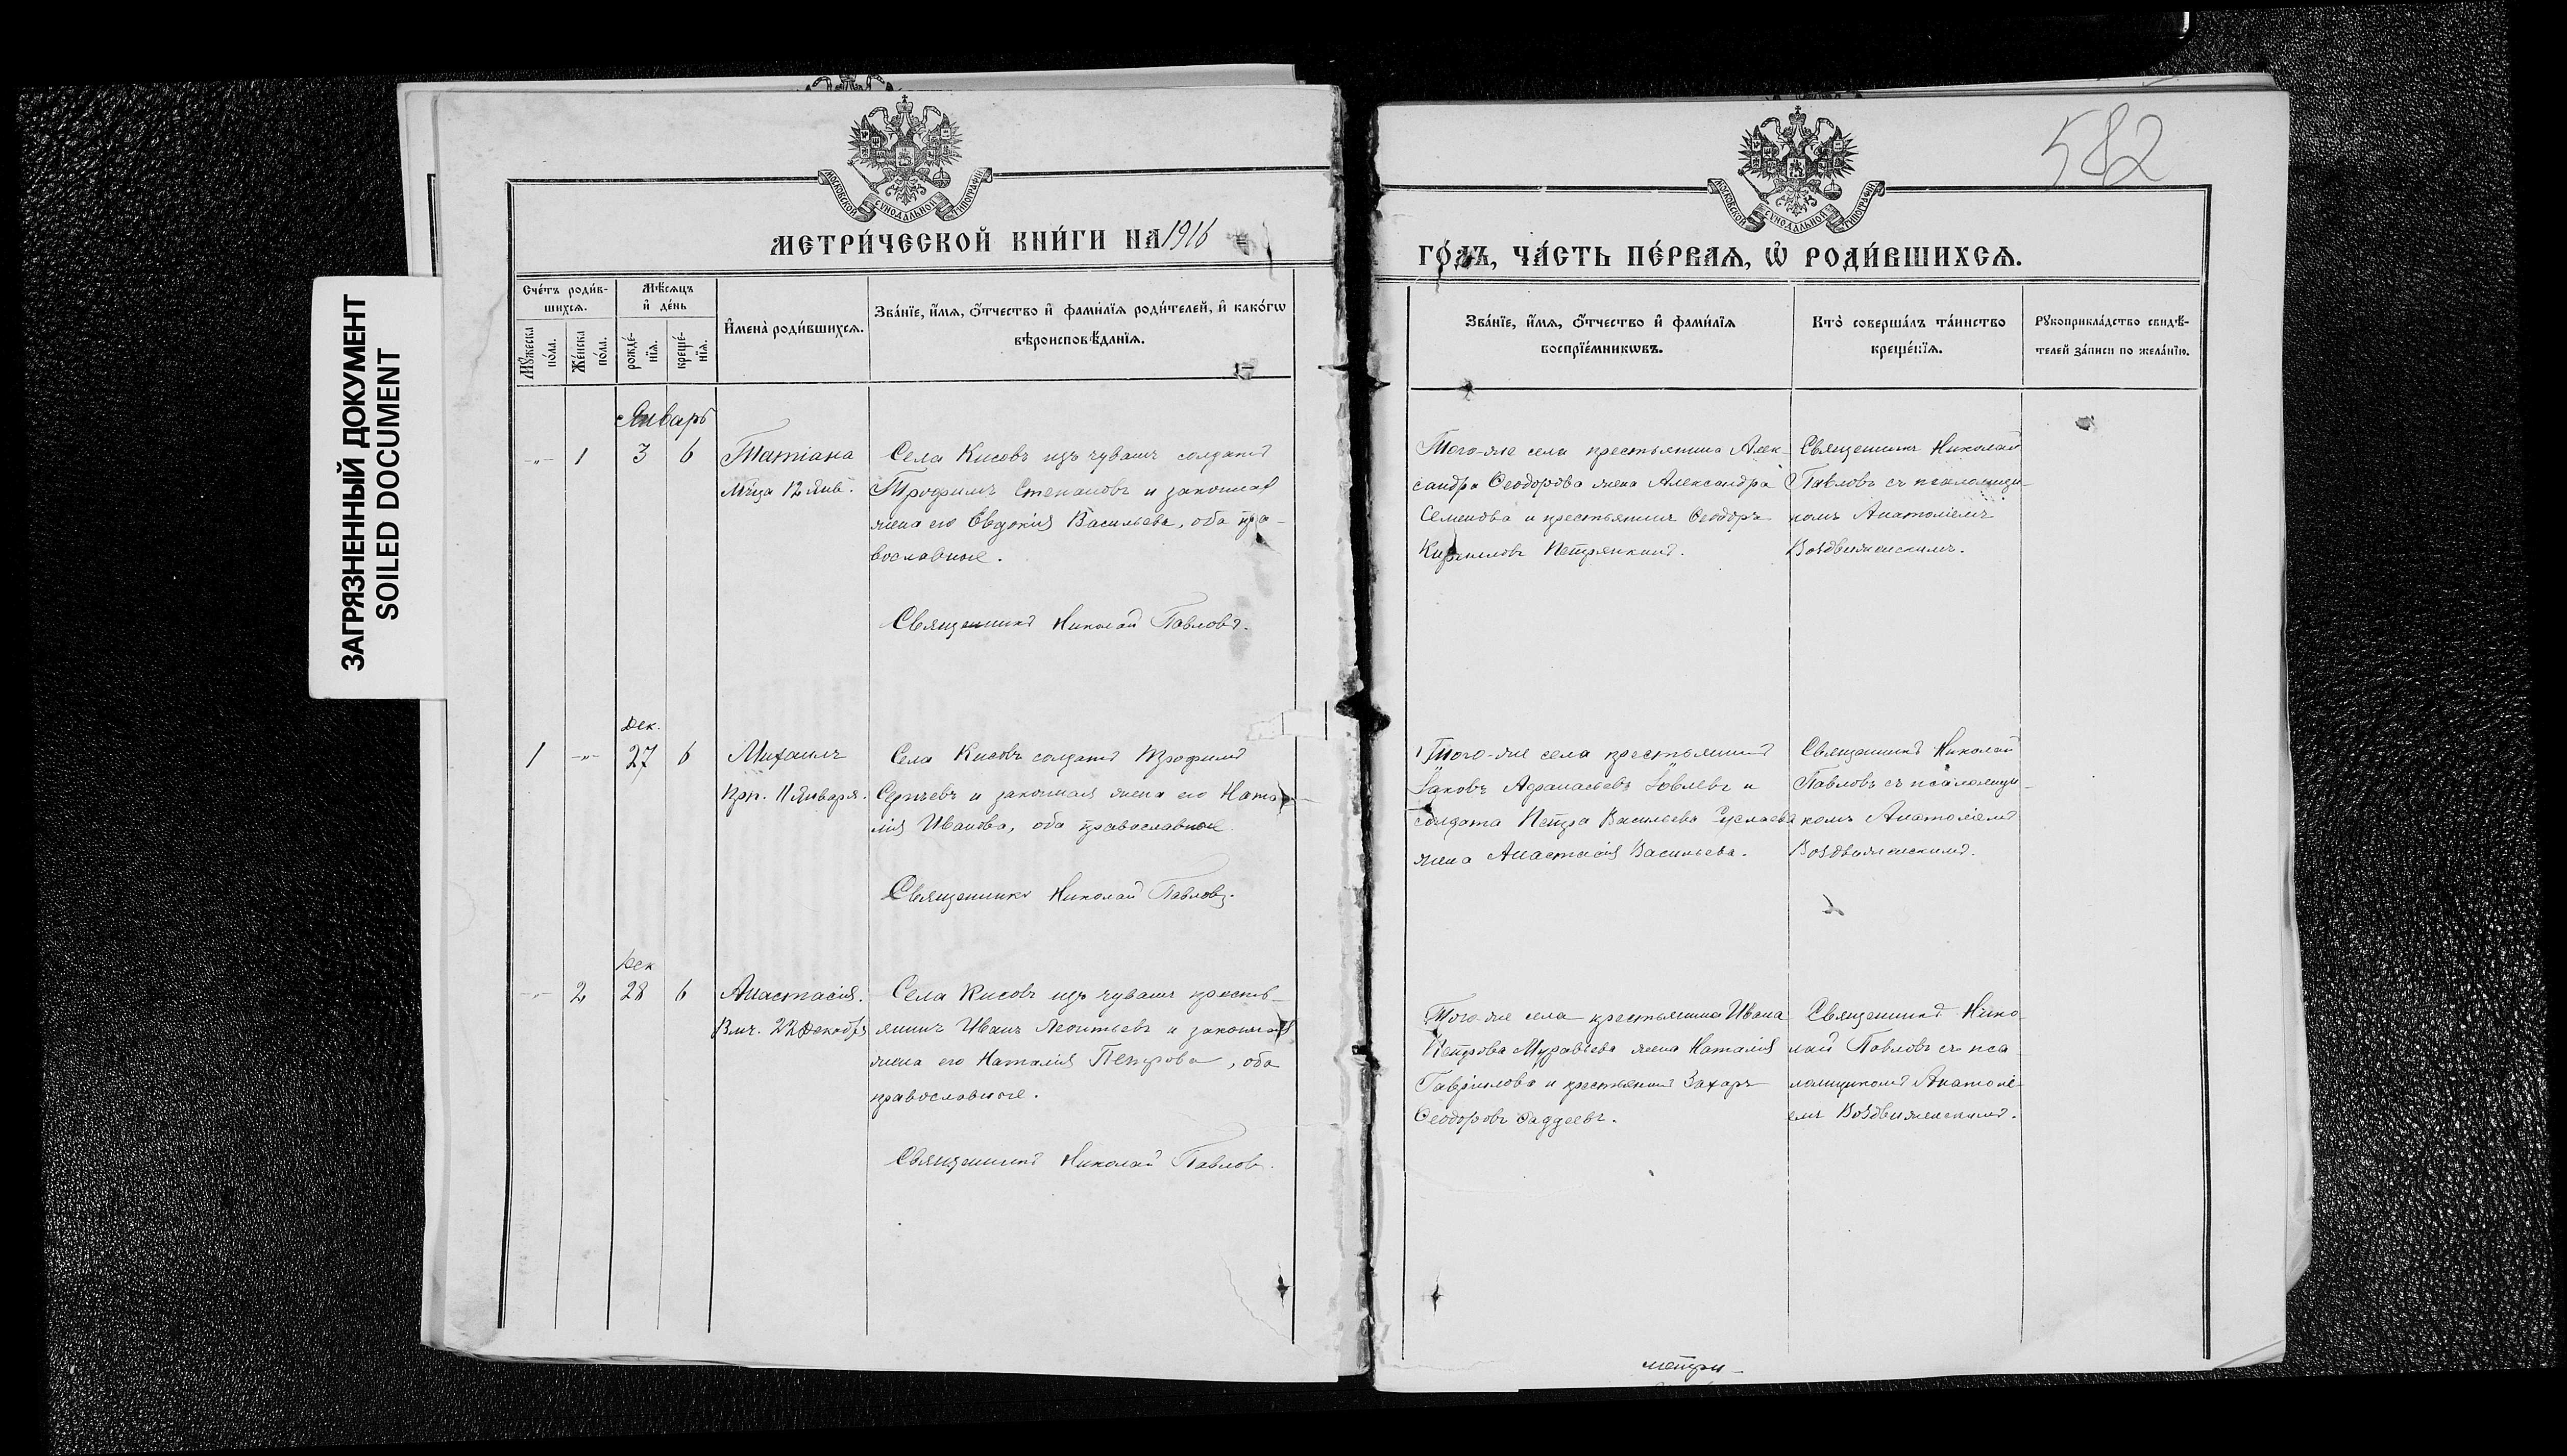 ЗАГРЯЗНЕННЫЙ ДОКУМЕНТ
SOILED DOCUMENT
МОСКОВСКОЙ СѴНОДАЛЬНОЙ ТИПОГРАФІИ
МЕТРИ́ЧЕСКОЙ КНИ́ГИ НА 1916
Сче́тъ роди́в-
шихсѧ.
Мꙋ́жеска
по́ла.
Же́нска
по́ла.
Мѣ́сѧцъ
и҆ де́нь
рожде́-
нїѧ.
креще́-
нїѧ.
И҆мена̀ роди́вшихсѧ.
Зва́нїе, и҆́мѧ, ѻ҆́тчество и҆ фами́лїѧ роди́телей, и҆ како́гѡ
вѣроисповѣ́данїѧ.
Январь
-„- 1 3 6 Татіана
Мч̃ца 12 Янв.
Села Кисовъ изъ чувашъ солдатъ
Трофимъ Степановъ и законная
жена его Евдокія Васильева, оба пра-
вославные.
Священникъ Николай Павловъ.
Дек.
1 -„- 27 6 Михаилъ
Прп. 11 Января.
Села Кисовъ солдатъ Трофимъ
Сергѣевъ и законная жена его Ната-
лія Иванова, оба православные.
Священникъ Николай Павловъ.
Дек
-„- 2 28 6 Анастасія.
Вмч. 22 Декабря
Села Кисовъ изъ чувашъ кресть-
янинъ Иванъ Леонтьевъ и законная
жена его Наталія Петрова, оба
православные.
Священникъ Николай Павловъ.
582
МОСКОВСКОЙ СѴНОДАЛЬНОЙ ТИПОГРАФІИ
ГО́ДЪ, ЧА́СТЬ ПЕ́РВАѦ, Ѡ҆ РОДИ́ВШИХСѦ.
Зва́нїе, и҆́мѧ, ѻ҆́тчество и҆ фами́лїѧ
воспрїе́мникѡвъ.
Кто̀ соверша́лъ та́инство
креще́нїѧ.
Рꙋкоприкла́дство свидѣ́-
телей за́писи по жела́нїю.
Того-же села крестьянина Алек-
сандра Ѳеодорова жена Александра
Семенова и крестьянинъ Ѳеодоръ
Кирилловъ Петрянкинъ.
Священникъ Николай
Павловъ съ псаломщи-
комъ Анатоліемъ
Воздвиженскимъ.
Того-же села крестьянинъ
Іаковъ Афанасьевъ Іовлевъ и
солдата Петра Васильева
жена Анастасія Васильева.
Священникъ Николай
Павловъ съ псаломщи-
комъ Анатоліемъ
Воздвиженскимъ.
Того-же села крестьянина Ивана
Петрова Муравьева жена Наталія
Гаврилова и крестьянинъ Захаръ
Ѳеодоровъ Фаддеевъ.
Священникъ Нико-
лай Павловъ съ пса-
ломщикомъ Анатолі-
емъ Воздвиженскимъ.
метри-